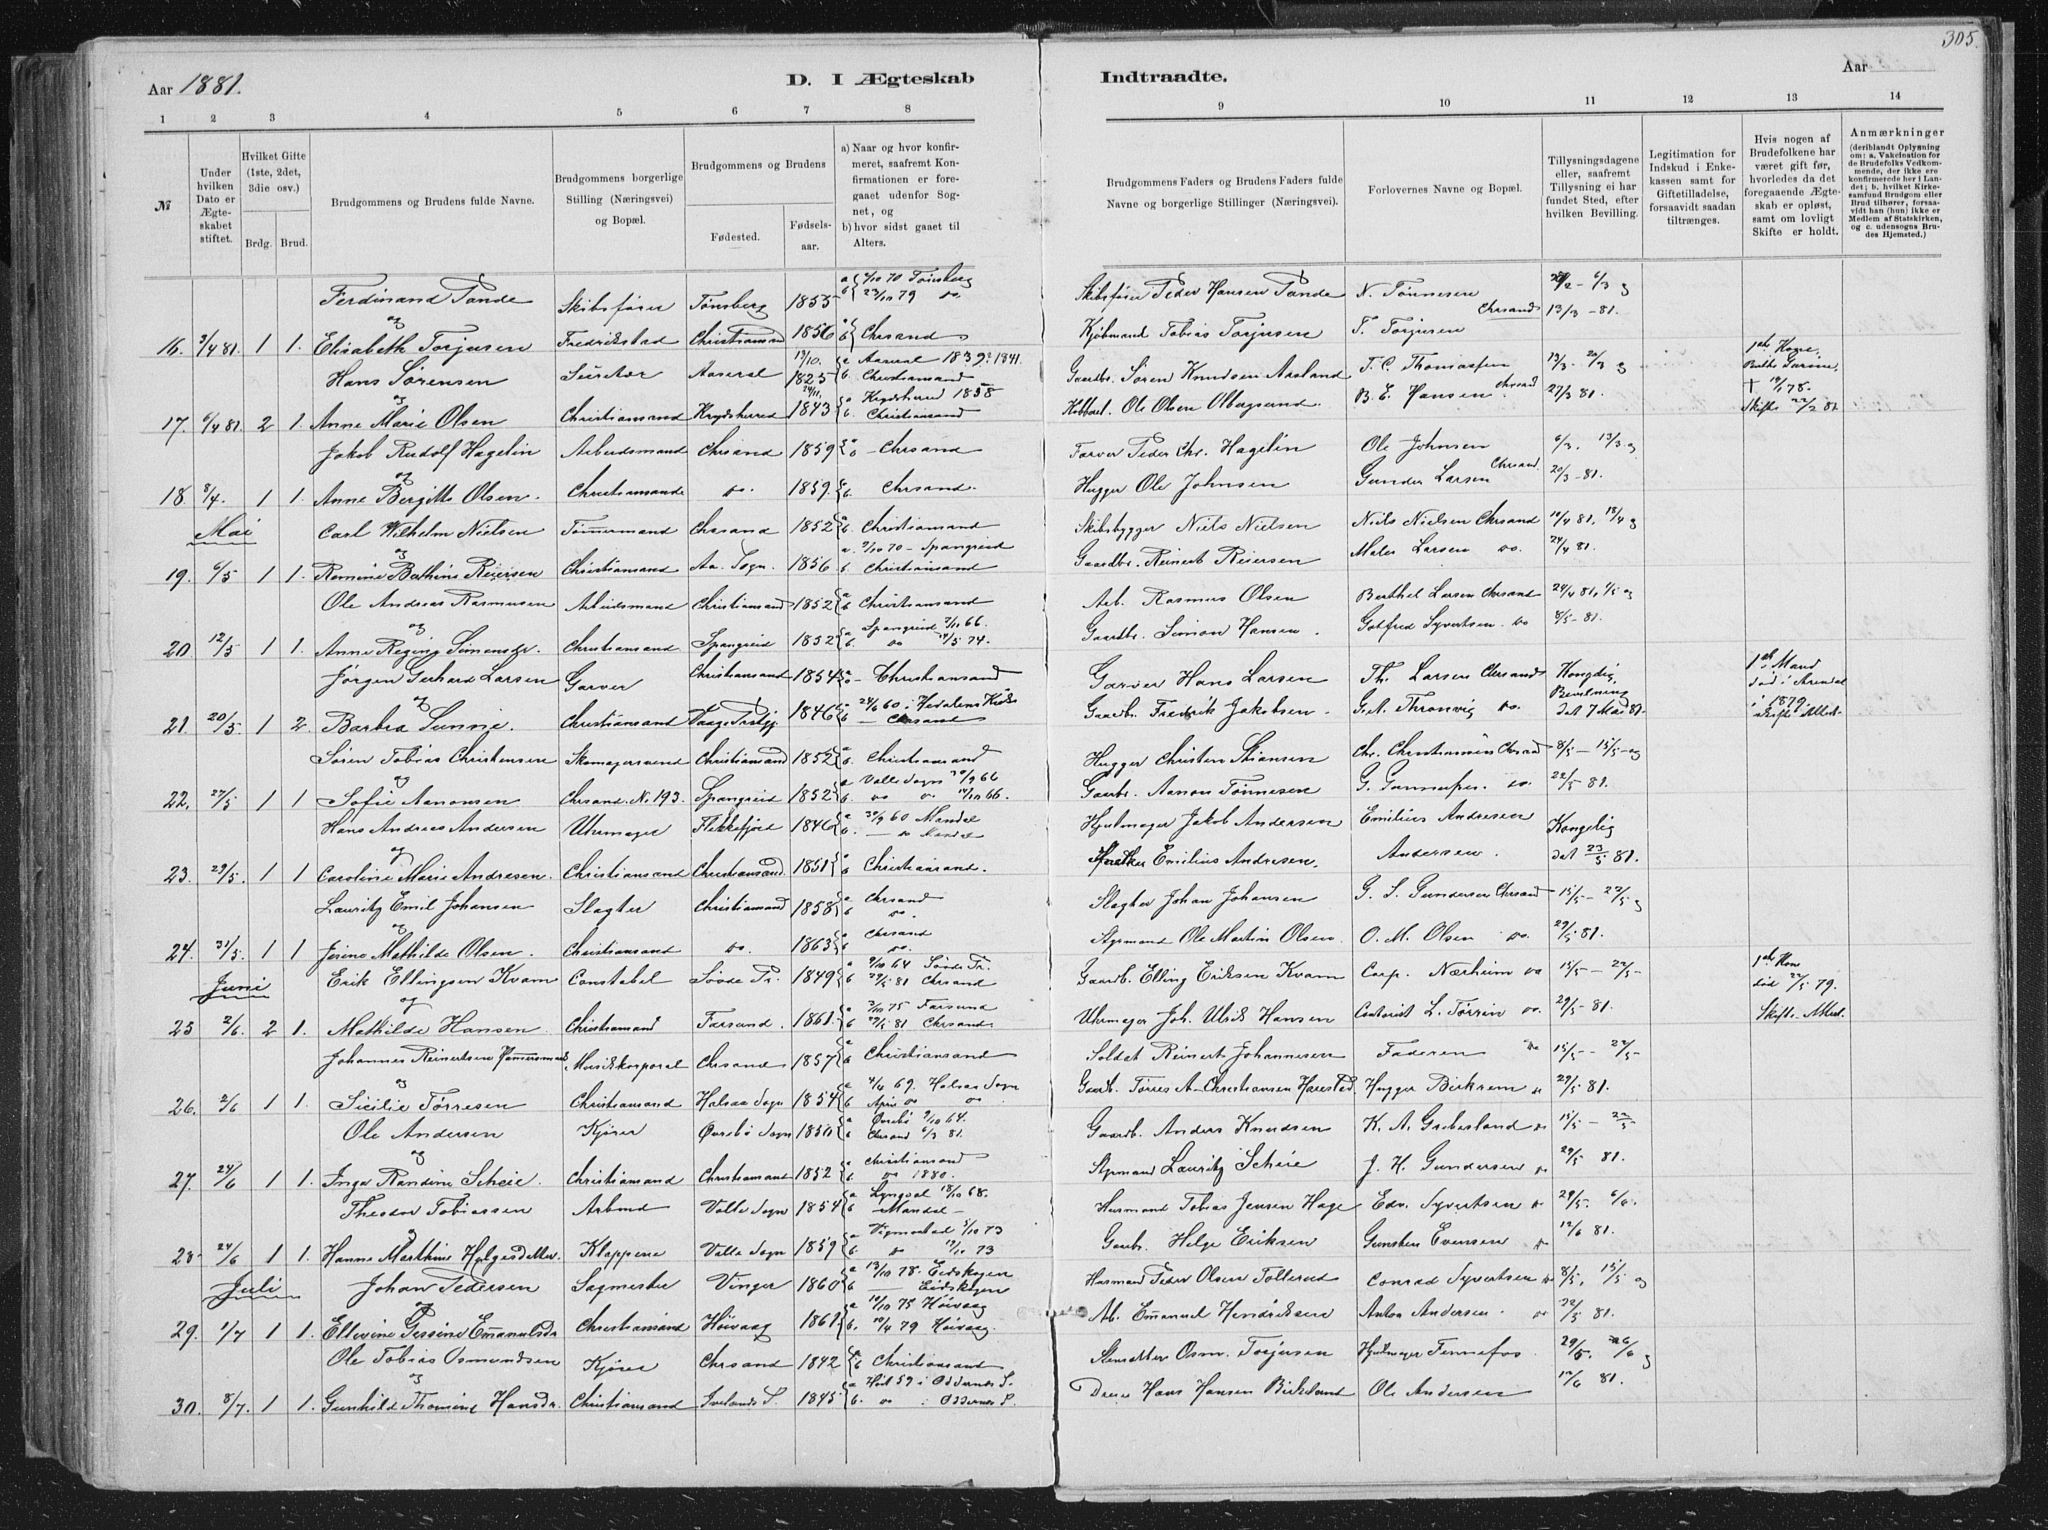 305.
Aar 1881.
D. I Ægteskab
Indtraadte.
Aar
1 2 3 4 5 6 7 8 9 10 11 12 13 14
№
Under hvilken Dato er Ægteskabet stiftet.
Hvilket Gifte (1ste, 2det, 3die osv.)
Brdg. Brud.
Brudgommens og Brudens fulde Navne.
Brudgommens borgerlige Stilling (Næringsvei) og Bopæl.
Brudgommens og Brudens
Fødested.
Fødselsaar.
a) Naar og hvor konfirmeret, saafremt Konfirmationen er foregaaet udenfor Sognet, og
b) hvor sidst gaaet til Alters.
Brudgommens Faders og Brudens Faders fulde Navne og borgerlige Stillinger (Næringsvei).
Forlovernes Navne og Bopæl.
Tillysningsdagene eller, saafremt Tillysning ei har fundet Sted, efter hvilken Bevilling.
Legitimation for Indskud i Enkekassen samt for Giftetilladelse, forsaavidt saadan tiltrænges.
Hvis nogen af Brudefolkene har været gift før, hvorledes da det foregaaende Ægteskab er opløst, samt om lovligt Skifte er holdt.
Anmærkninger (deriblandt Oplysning om: a. Vakcination for de Brudefolks Vedkommende, der ikke ere konfirmerede her i Landet; b. hvilket Kirkesamfund Brudgom eller Brud tilhører, forsaavidt han (hun) ikke er Medlem af Statskirken, og c. udensogns Brudes Hjemsted.)
Ferdinand Tande Skibsfører Tønsberg 1853 a 2/10 70 Tönsberg b 23/11 79 do. Skibsfører Peder Hansen Tande N. Tönnesen 27/2 - 6/3 og
og
16. 3/4 81. 1 1. Elisabeth Torjusen Fredrikstad Christiansand 1856 a b Chrsand Kjöbmand Tobias Torjusen T. Torjusen Chrsand 13/3 - 81.
Hans Sörensen Aaseral 13/10. 1825 a Aaseral 1839 1841. b. Christiansand Gaardbr. Sören Knudsen Aasland T. C. Thomassen 13/3 - 20/3 og 1ste Kone
og
17. 6/4 81. 2 1. Anne Marie Olsen Christiansand Krydsherred 24/11. 1843 a Krydsherred 1858 b. Christiansand Ole Olsen B. E. Hansen Chrsand 27/3 81. † 78. Skifte 22/2 81.
Jakob Rudolf Hagelin Arbeidsmand Chrsand 1859 a b - Chrsand Farver Peder Chr. Hagelin Ole Johnsen 6/3. 13/3 og
og
18 8/4. 1 1. Anne Bergitte Olsen. Christiansand do. 1859. a b. Chrsand. Hugger Ole Johnsen Gunder Larsen Chrsand 20/3 - 81.
Mai Carl Wilhelm Nielsen Tömmermand Chrsand 1852 a b. Christiansand Skibsbygger Niels Nielsen Niels Nielsen Chrsand 10/4 81, 18/4 og
og
19. 6/5 1 1. Remine Bathine Reiersen Christiansand Aa. Sogn. 1856 a. 2/10 70 - Spangreid b Christiansand Gaardbr. Reinert Reiersen Larsen do. 24/4 81.
Ole Andreas Rasmusen Arbeidsmand Christiansand 1852 a b Christiansand Arb. Rasmus Olsen Berthel Larsen Chrsand 24/4 81, 1/5 og
og
20 12/5 1 1. Anne Regine Simonsdr. Christiansand Spangreid 1852 a Spangreid 7/10 66. b do 74. Gaardbr. Simon Hansen. Gotfred Syvertsen. do 8/5 - 81.
Jørgen Gerhard Larsen Garver Christiansand 1854 a b - Christiansand Garver Hans Larsen Th. Larsen Chrsand Kongelig 1ste Mand
og
21. 20/5 1 2. Barbra Sunnie. Christiansand 1846 a 24/6 60 i Hedalens Kirke b - Chrsand Gaardbr. Fredrik Jakobsen G. A. Thronvig do. Bevilning det 7 Mai 81. död i Arendal i 1879.
Sören Tobias Christensen Skomagersvend Christiansand 1852 a b. Christiansand Hugger Christen Stiansen Chr. Christiansen Chrsand 8/5 - 15/5 - og
og
22. 27/5 1 1 Sofie Aanonsen Chrsand. No 193. Spangreid 1852 a Valle Sogn 30/9 66 b. do do 14/10 66. Gaardbr. Aanon Tönnesen G. do. 22/5 81.
Hans Andreas Andersen Uhrmager Flekkefjord 1846 a 30/9 60 Mandal b. - do Mandal Hjulmager Jakob Andersen Emilius Andresen Kongelig
og
23. 29/5. 1 1 Caroline Marie Andresen. Christiansand Christiansand. 1851 a b Christiansand. Emilius Andresen. Andersen. det 23/5 81.
Lauritz Emil Johansen Slagter Christiansand 1858 a Chrsand b do. Slagter Johan Johansen G. S. Gundersen Chrsand 15/5 - 22/5 og
og
24. 31/5. 1 1 Jesine Mathilde Olsen. Christiansand do. 1863 a Chrsand b do. Styrmand Ole Martin Olsen. O. M. Olsen do. 29/5 81.
Juni Erik Ellingsen Kvam Constabel Sövde Pr. 1849 a 2/10 64 Sövde Pr. b 29/5 81 Chrsand Gaardb. Elling Eriksen Kvam Corp. Nærheim do 15/5 - 22/5 - 1ste Kone
og
25 2/6. 2 1. Mathilde Hansen. Christiansand Farsund. 1861 a 2/10 75 Farsund b 29/5 81 Chrsand. Uhrmager Joh. Ulrik Hansen Contorist L. Törrin do. 29/5 - 81. död 22/5 79. Skifte Attest.
Johannes Reinertsen Musikkorporal Chrsand 1857 a b Christiansand Soldat Reinert Johannesen Faderen do 15/5 - 22/5
og
26. 2/6 1 1. Sicilie Törresen Christiansand Halsaa Sogn 1854 a 4/4 69. Halsaa Sogn b April do do Gaardb. Törres A. Christiansen Harestad. Hugger Birkrem do 29/5 81.
Ole Andersen Kjörer Övrebö Sogn 1850 a Övrebö 2/10 64. b Chrsand 6/3 81. Gaardb. Anders Knudsen K. A. Grebesland do 15/5 - 22/5
og
27. 24/6 1 1. Inga Randine Scheie. Christiansand Christiansand 1852 a Christiansand b. do 1880. Styrmand Lauritz Scheie J. H. Gundersen do 29/5 81.
Theodor Tobiassen Arbmd Valle Sogn 1854 a Lyngdal 18/10 68. b - Mandal - Husmand Tobias Jensen Hage Edv. Syvertsen do 29/5. 6/6.
og
28 24/6 1 1. Hanne Marthine Helgesdatter. Klappene Valle Sogn 1859 a Vigmostad 5/10 73 b. do 73 Gaardbr. Helge Eriksen Gunsten Evensen do 12/6 81.
Juli Johan Pedersen Sagmester Vinger 1860 a 13/10 78. Eidskogen b - Eidskogen Husmand Peder Olsen Tollerud Conrad Syvertsen do 8/5, 15/5 og
og
29. 1/7 1 1. Ellevine Gessine Emanuelsdr. Christiansand Höivaag 1861 a 10/10 75 Höivaag b. 10/4 79 Höivaag. Ab. Emanuel Hendriksen Anton Andersen. do 22/5 81.
Ole Tobias Osmundsen Kjörer Chrsand 1842 a b Christiansand Osm. Torjusen Hjulmager Fennefos 29/5. 6/6 og
og
30. 8/7. 1 1. Gunhild Thomine Hansdr. Christiansand Ivelands S. 1845 a Höst 59 i Oddernes S. b. do i Oddernes S. Hans Hansen Birkeland Ole Andersen 12/6 81.